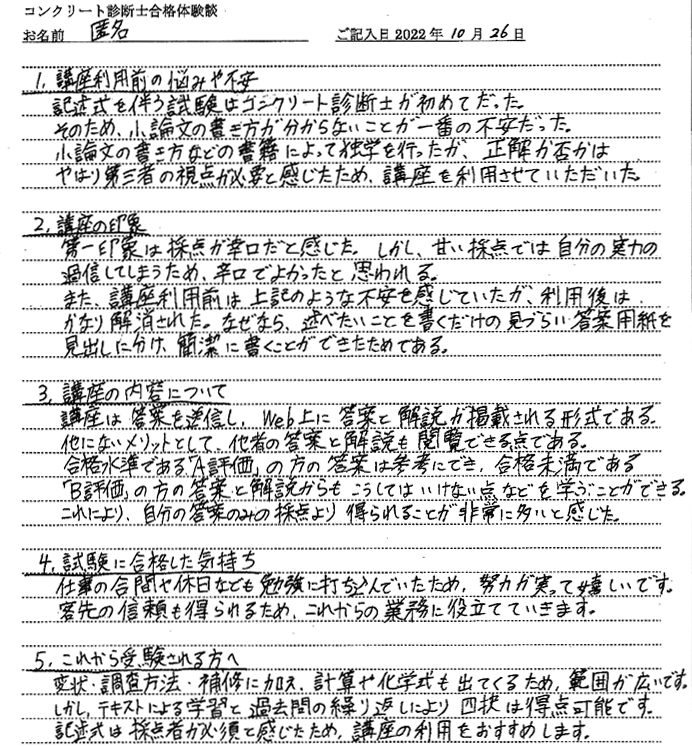 コンクリート診断士合格体験談
お名前 匿名 ご記入日 2022年 10月 26日
1. 講座利用前の悩みや不安
記述式を伴う試験はコンクリート診断士が初めてだった。
そのため、小論文の書き方が分からないことが一番の不安だった。
小論文の書き方などの書籍によって独学を行ったが、正解か否かは
やはり第三者の視点が必要と感じたため、講座を利用させていただいた。
2. 講座の印象
第一印象は採点が辛口だと感じた。しかし、甘い採点では自分の実力の
過信してしまうため、辛口でよかったと思われる。
また、講座利用前は上記のような不安を感じていたが、利用後は
かなり解消された。なぜなら、述べたいことを書くだけの見づらい答案用紙を
見出しに分け、簡潔に書くことができたためである。
3. 講座の内容について
講座は答案を送信し、Web上に答案と解説が掲載される形式である。
他にないメリットとして、他者の答案と解説も閲覧できる点である。
合格水準である「A評価」の方の答案は参考にでき、合格未満である
「B評価」の方の答案と解説からもこうしてはいけない点などを学ぶことができる。
これにより、自分の答案のみの採点より得られることが非常に多いと感じた。
4. 試験に合格した気持ち
仕事の合間や休日なども勉強に打ち込んでいたため、努力が実って嬉しいです。
客先の信頼も得られるため、これからの業務に役立てていきます。
5. これから受験される方へ
変状・調査方法・補修に加え、計算や化学式も出てくるため、範囲が広いです。
しかし、テキストによる学習と過去問の繰り返しにより四択は得点可能です。
記述式は採点者が必須と感じたため、講座の利用をおすすめします。